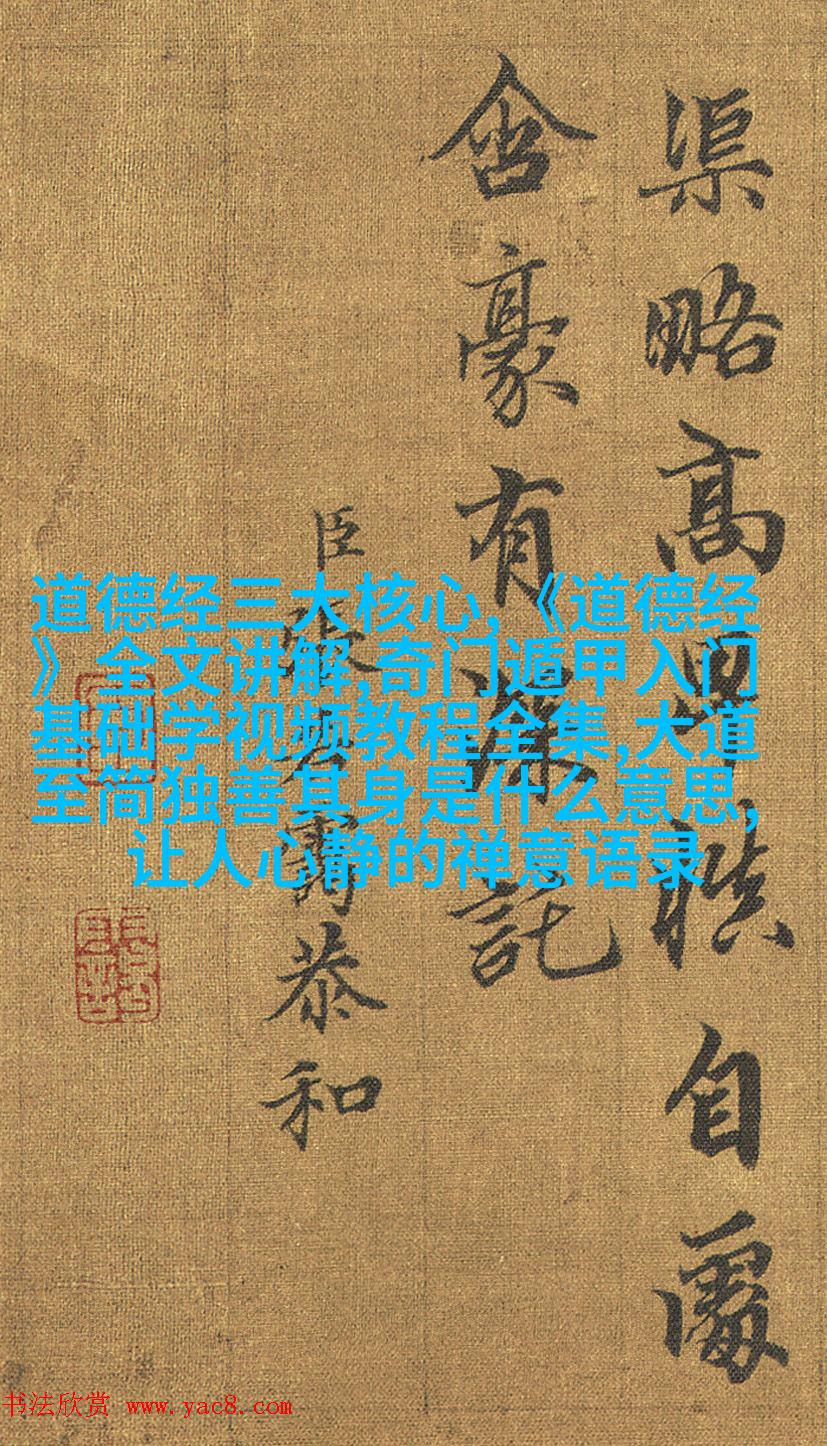 渠略高自處
含豪有深託
臣張恭和
道德经三大核心,《道德经
》全文讲解,奇门遁甲入门
基础学视频教程全集,大道
至简独善其身是什么意思,
让人心静的禅意语录
书法欣赏 www.yac8.com